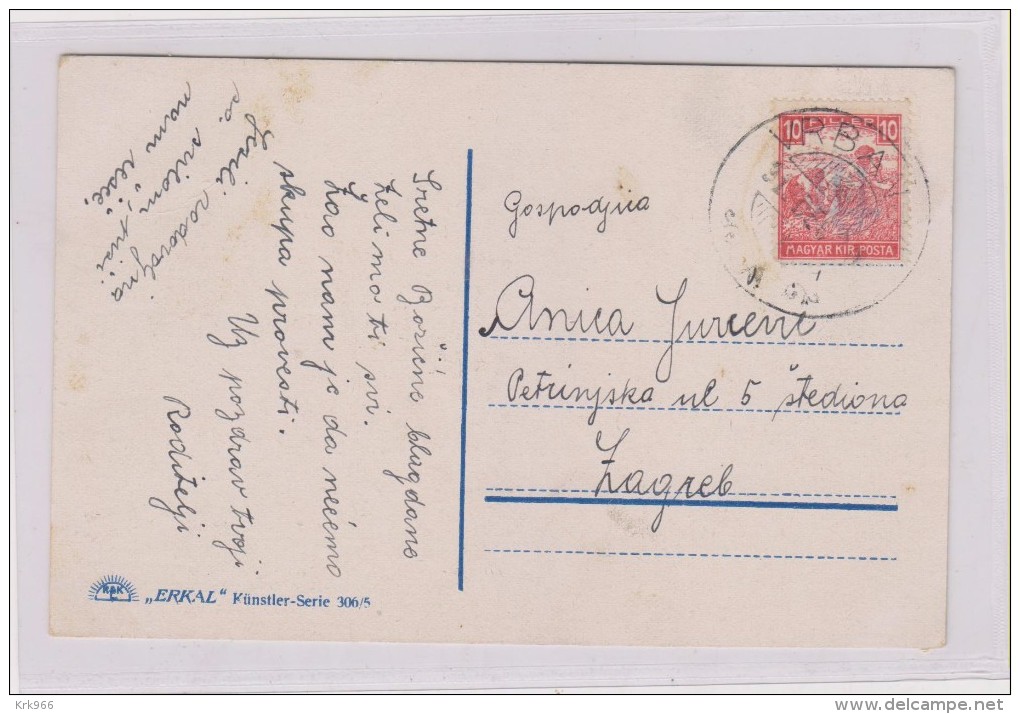 Sretne Božićne blagdane
želimo ti svi.
žao nam je da nećemo
skupa provesti.
Uz pozdrav tvoji
Roditelji
10 FILLER 10
MAGYAR KIR. POSTA
VRBA
Gospodjica
Anica Jurčević
Petrinjska ul 5 štediona
Zagreb
R&K
L
„ERKAL" Künstler-Serie 306/5
Krk966
delcampe.net